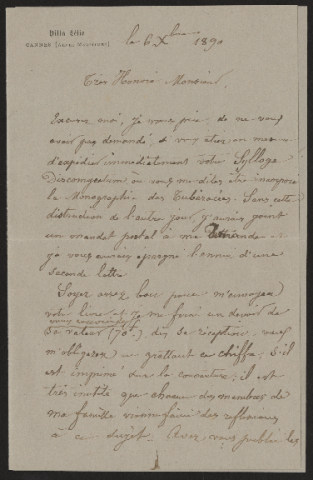 Villa Félix
CANNES (Alpes Maritimes)
le 6 Xbre 1890
Très Honoré Monsieur,
Excusez moi, je vous prie, de ne vous
avoir pas demandé, si vous étiez en
d'expédier immédiatement votre Sylloge
Discomycetum où vous me dites être incorporé
la Monographie des Tubéracées. Sans cette
distraction de l'autre jour, j'aurais joint
un mandat postal à ma demande &
je vous aurais épargné l'ennui d'une
seconde lettre.
Soyez assez bon pour m'envoyer
votre livre et je me ferai un devoir de
vous envoyer
sa valeur (70f.) dès sa réception. Vous
m'obligerez en grattant ce chiffre s'il
est imprimé sur la couverture; il est
très inutile que chacun des membres de
ma famille vienne faire des réflexions
à ce sujet. Avez vous publié les